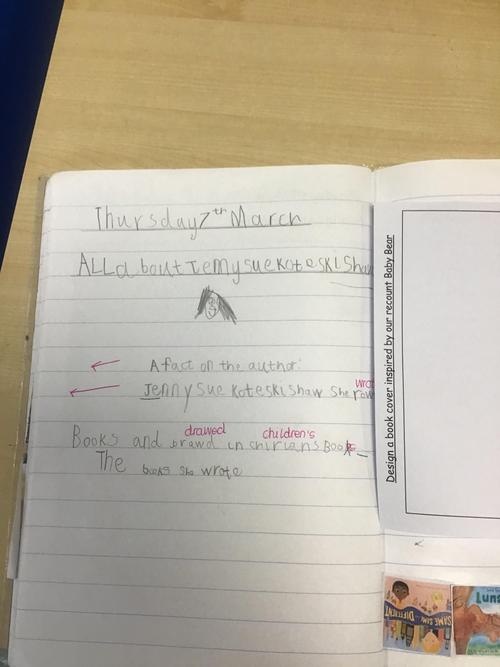 Thursday 7th March
ALL about Jemysue Koteski Shaw
A fact on the author:
Jennysue koteskishaw she row
wro
drawed children's
Books and brawd in chirians Books
The books she wrote
Design a book cover inspired by our recount Baby Bear
SAME SAME DIFFERENT